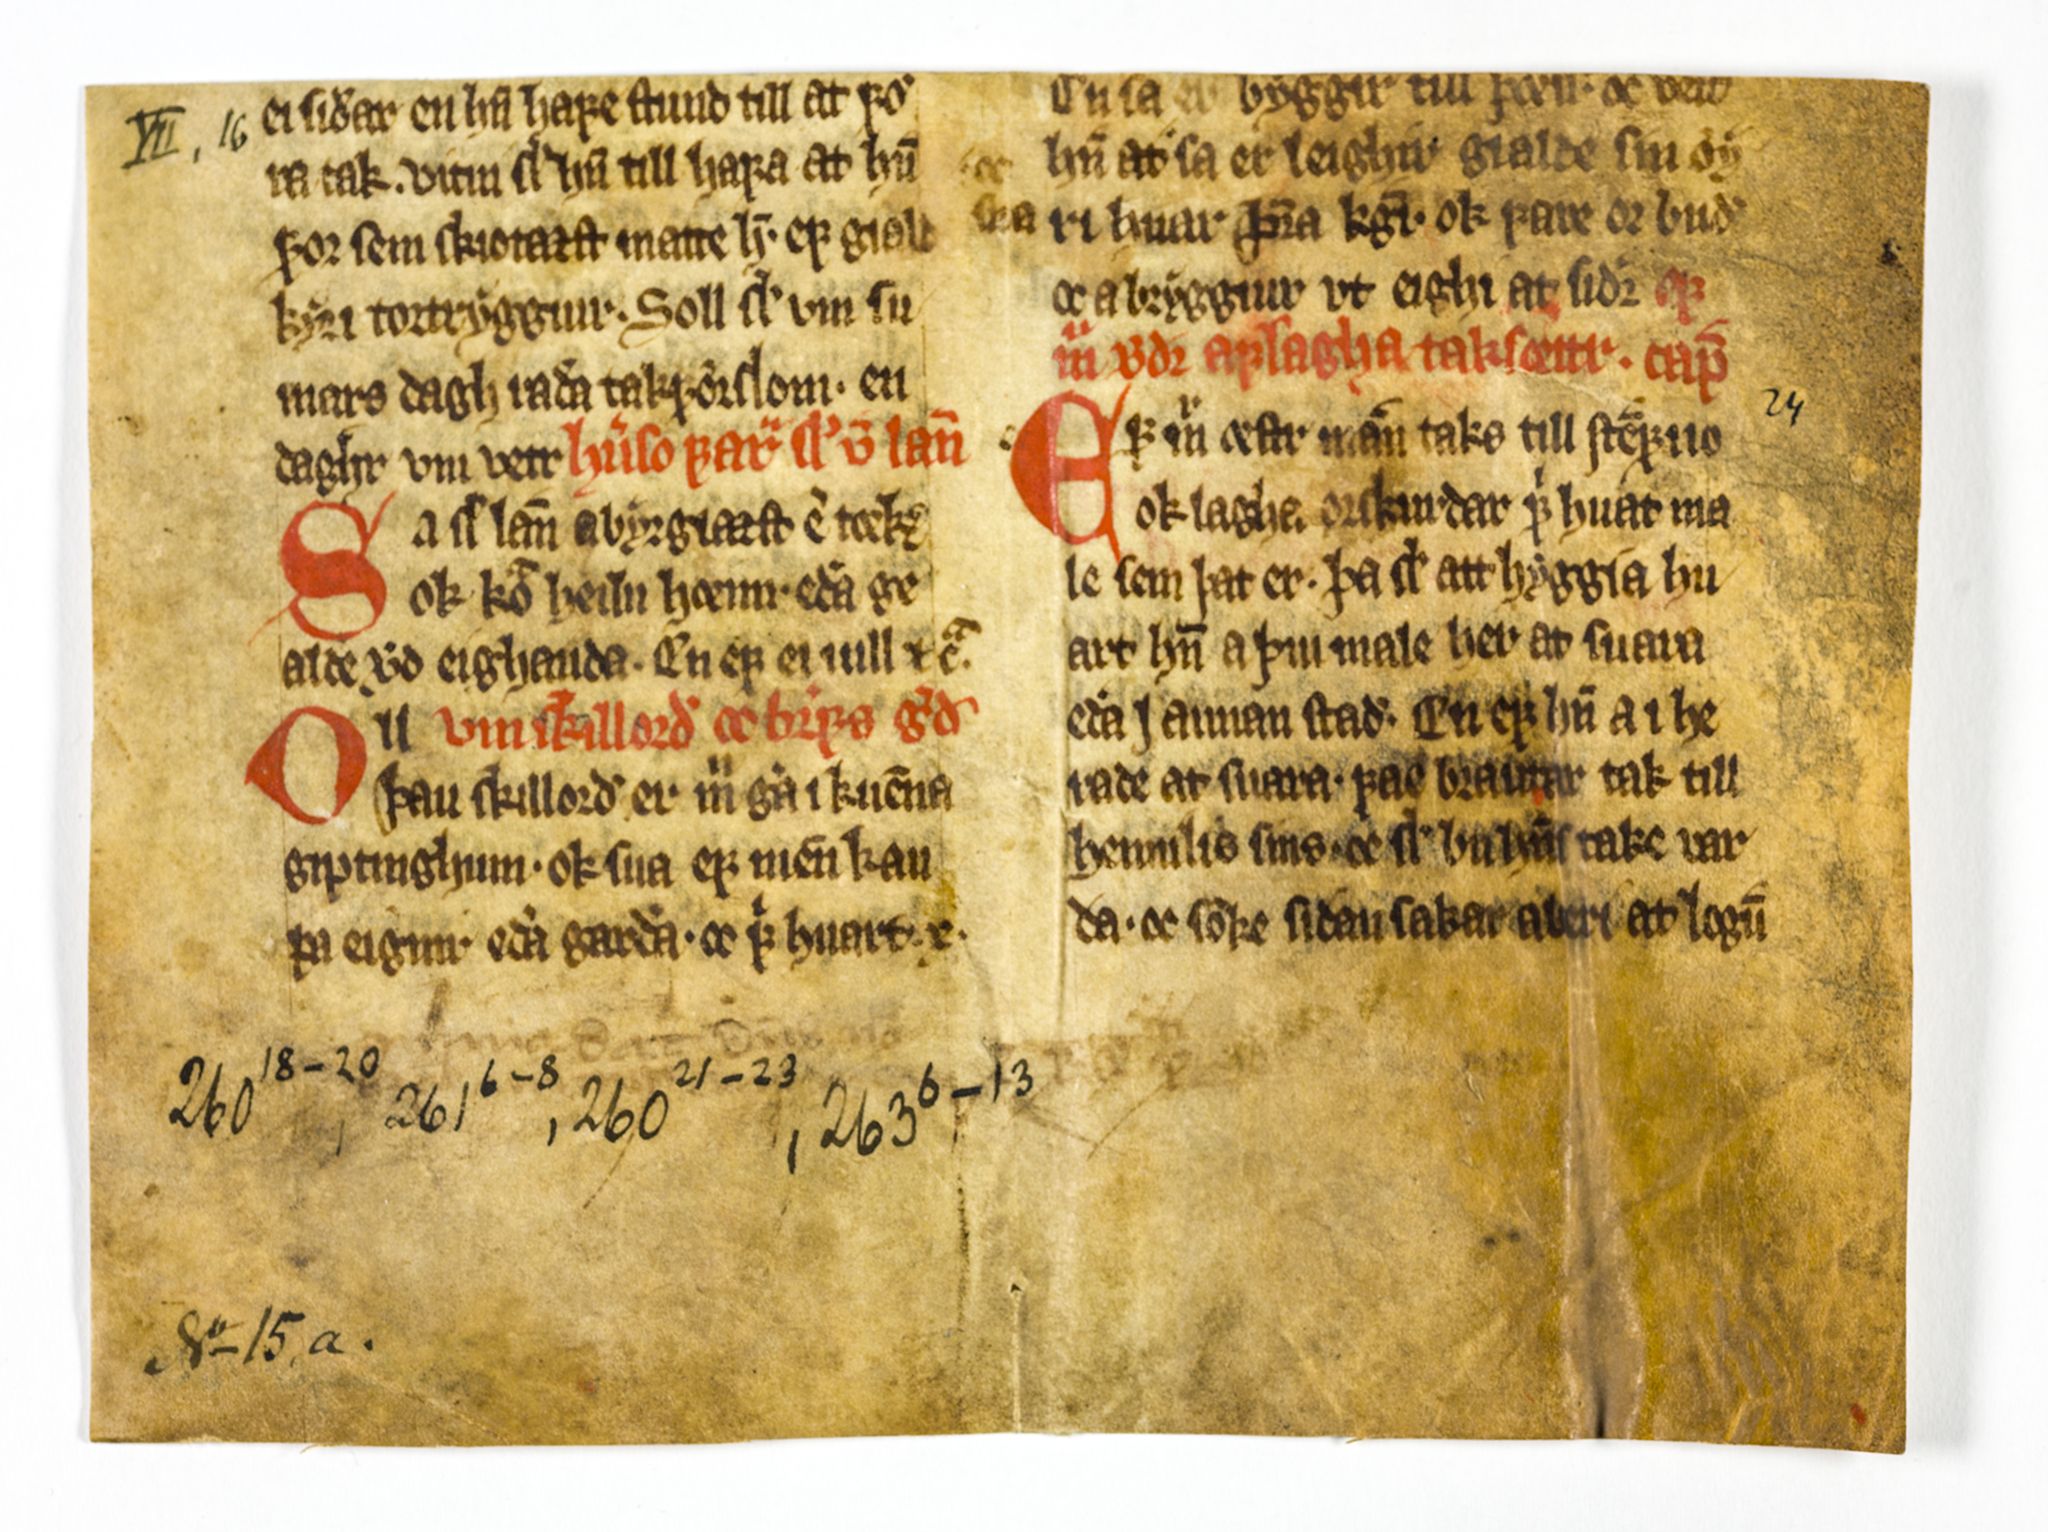 VII, 16
ei siðar en hn̄ hafe stund till at fo
ra tak. vitni sl̉ hn̄ till hafa at hn̄
for sem skiotazst matte h̄. ef giald
kyri tortryggiur. Soll sl̉ vm su
mars dagh rada takforslom. en
daghr vm vetr huͥso farͣ sl̉ v̄ lan̄
Sa sl̉ lan̄ abyrgiazst e᷎ tœkr
ok ko᷎ heilu hœim. eða ge
alde v̉d eighanda. En ef ei uill
Oll vm skillord oc bͥfs g̉d
þau skillord er m̄ g̉a i kuēna
giptinghum. ok sua ef men kau
pa eignir eða garða. oc vͥ huart. e.
oc
En sa er byggir till
hn̄ at sa er leighir gialde sin
ri huar þr̄a kḡr. ok fare or bud
oc abryggiur vt eighi at sidr ef
m̄ v̉dr aflagha taksœttr. cap̄
Ef m̄ œstr man̄ taks till stefno
ok lagha orskurdar vͥ huat ma
le sem þat er. þa sl̉ att hyggia hu
art hn̄ a þui male her at suara
eða j annan stad. En ef hn̄ a i he
rade at suara. fae brautar tak till
heimilis sins. oc sl̉ bu hn̄s take var
da. oc sœke sidan sakar aberi at logū
24
260 18-20, 261 6-8, 260 21-23, 263 6-13
No 15, a.